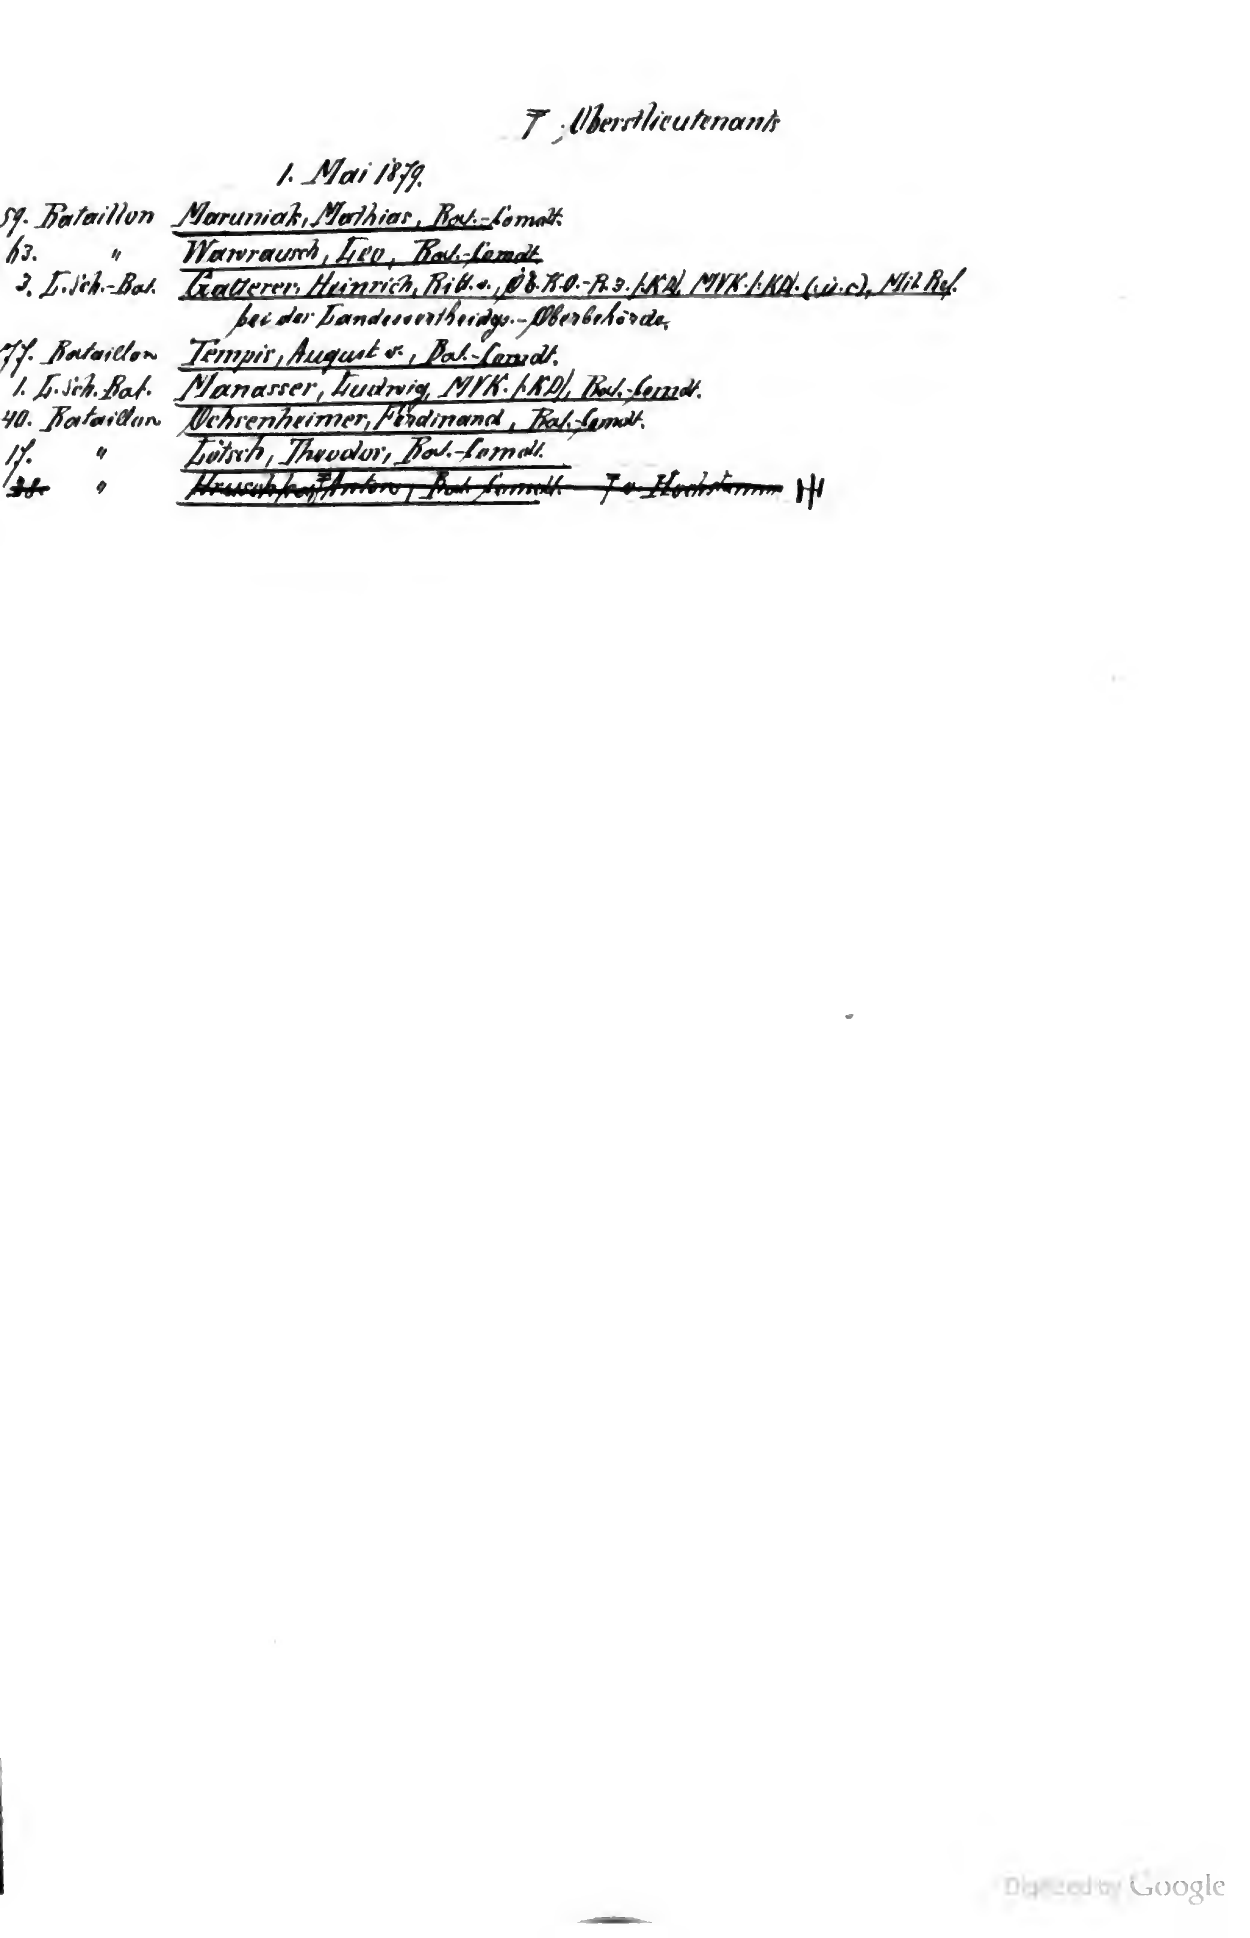 Oberstlieutenants
1. Mai 1879.
59. Bataillon Maruniak, Mathias, Bat.-Comdt.
63. " Wawrausch, Leo, Bat.-Comdt.
3. L.Sch.-Bat. Gatterer, Heinrich, Ritt. v., ÖE.K.O.-R.3. /.KD/, MVK. /.KD/. (.ü.c.), Mil Ref.
bei der Landesvertheidgs.-Oberbehörde,
77. Bataillon Tempis, August v., Bat.-Comdt.
1. L.Sch.Bat. Manasser, Ludwig, MVK. /.KD/, Bat.-Comdt.
40. Bataillon Ochsenheimer, Ferdinand, Bat.-Comdt.
17. " Lötsch, Theodor, Bat.-Comdt.
38. " Hruschka, Anton, Bat.-Comdt.
Digitized by Google